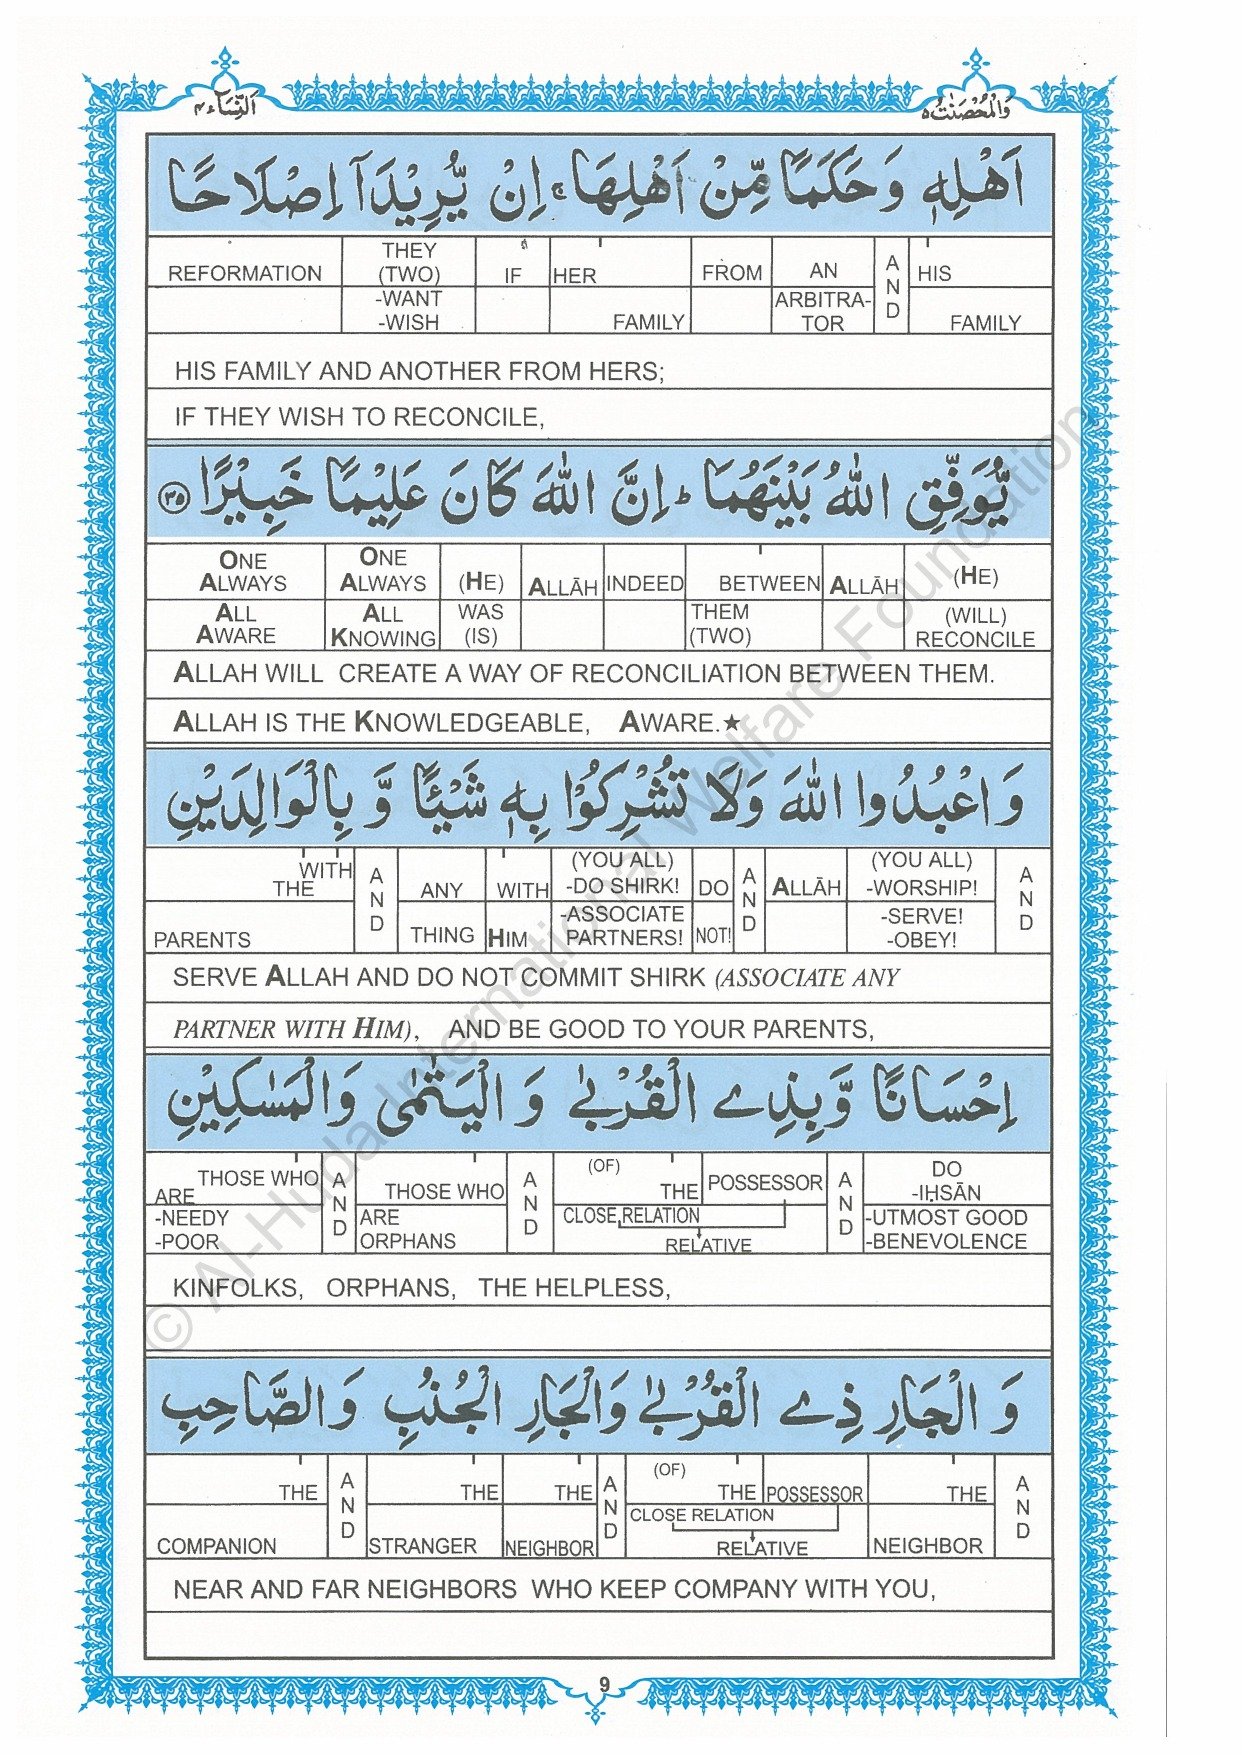 النِّسَآء ٤
وَالْمُحْصَنٰتُ ٥
اَهْلِهٖ وَحَكَمًا مِّنْ اَهْلِهَا ۚ اِنْ يُّرِيْدَآ اِصْلَاحًا
REFORMATION THEY (TWO) -WANT -WISH IF HER FAMILY FROM AN ARBITRA- TOR AND HIS FAMILY
HIS FAMILY AND ANOTHER FROM HERS;
IF THEY WISH TO RECONCILE,
يُّوَفِّقِ اللّٰهُ بَيْنَهُمَا ؕ اِنَّ اللّٰهَ كَانَ عَلِيْمًا خَبِيْرًا ٣٥
ONE ALWAYS ALL AWARE ONE ALWAYS ALL KNOWING (HE) WAS (IS) ALLĀH INDEED BETWEEN THEM (TWO) ALLĀH (HE) (WILL) RECONCILE
ALLAH WILL CREATE A WAY OF RECONCILIATION BETWEEN THEM.
ALLAH IS THE KNOWLEDGEABLE, AWARE.★
وَاعْبُدُوا اللّٰهَ وَلَا تُشْرِكُوْا بِهٖ شَيْئًا وَّ بِالْوَالِدَيْنِ
WITH THE PARENTS AND ANY THING WITH HIM (YOU ALL) -DO SHIRK! -ASSOCIATE PARTNERS! DO NOT! AND ALLĀH (YOU ALL) -WORSHIP! -SERVE! -OBEY! AND
SERVE ALLAH AND DO NOT COMMIT SHIRK (ASSOCIATE ANY
PARTNER WITH HIM), AND BE GOOD TO YOUR PARENTS,
اِحْسَانًا وَّبِذِے الْقُرْبٰى وَالْيَتٰمٰى وَالْمَسٰكِيْنِ
THOSE WHO ARE -NEEDY -POOR AND THOSE WHO ARE ORPHANS AND (OF) THE CLOSE RELATION POSSESSOR RELATIVE AND DO -IḤSĀN -UTMOST GOOD -BENEVOLENCE
KINFOLKS, ORPHANS, THE HELPLESS,
وَالْجَارِ ذِے الْقُرْبٰى وَالْجَارِ الْجُنُبِ وَالصَّاحِبِ
THE COMPANION AND THE STRANGER THE NEIGHBOR AND (OF) THE CLOSE RELATION POSSESSOR RELATIVE THE NEIGHBOR AND
NEAR AND FAR NEIGHBORS WHO KEEP COMPANY WITH YOU,
9
© Al-Huda International Welfare Foundation